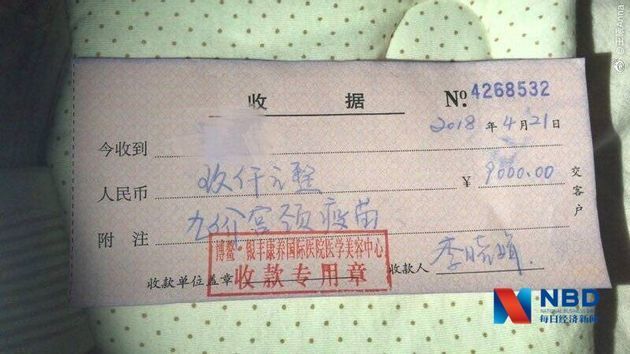 @王晨Anna
收 据 № 4268532
2018 年 4 月 21 日
今收到
人民币 玖仟元整 ¥ 9000.00
附 注 九价宫颈疫苗
交客户
博鳌·银丰康养国际医院医学美容中心
收款专用章
收款单位盖章 收款人
NBD
NATIONAL BUSINESS DAILY
每日经济新闻